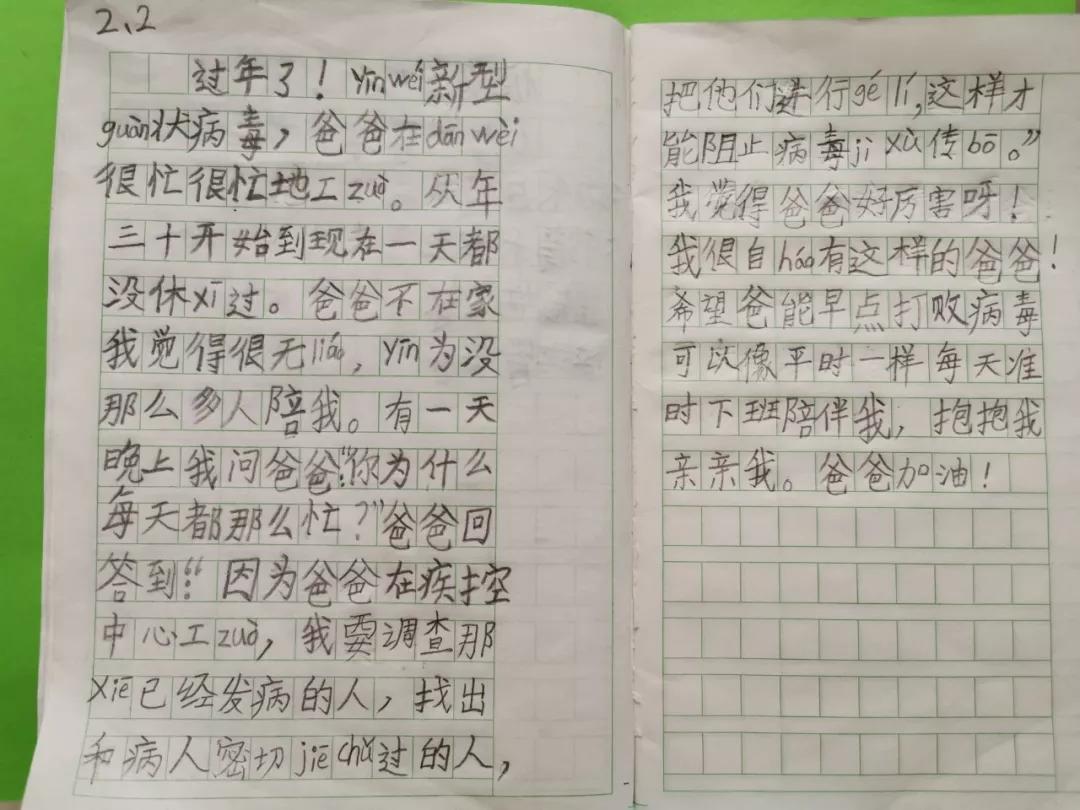 2、2
过年了！yīn wéi新型
guàn状病毒，爸爸在dān wèi
很忙很忙地工zuò。从年
三十开始到现在一天都
没休xī过。爸爸不在家
我觉得很无liáo，yīn为没
那么多人陪我。有一天
晚上我问爸爸：“你为什么
每天都那么忙？”爸爸回
答到：“因为爸爸在疾控
中心工zuò，我要调查那
xiē已经发病的人，找出
和病人密切jiē chù过的人，
把他们进行gé lí，这样才
能阻止病毒jì xù传bō。”
我觉得爸爸好厉害呀！
我很自háo有这样的爸爸！
希望爸能早点打败病毒
可以像平时一样每天准
时下班陪伴我，抱抱我
亲亲我。爸爸加油！